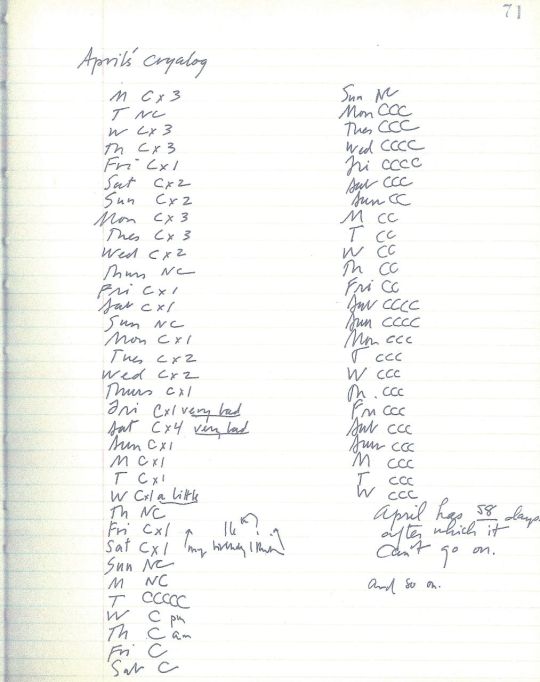 71
April's cryalog
M C x 3
T NC
W C x 3
Th C x 3
Fri C x 1
Sat C x 2
Sun C x 2
Mon C x 3
Thes C x 3
Wed C x 2
Thurs NC
Fri C x 1
Sat C x 1
Sun NC
Mon C x 1
Tues C x 2
Wed C x 2
Thurs C x 1
Fri C x 1 very bad
Sat C x 4 very bad
Sun C x 1
M C x 1
T C x 1
W C x 1 a little
Th NC
Fri C x 1 16 ?
Sat C x 1 my birthday I think
Sun NC
M NC
T CCCCC
W C pm
Th C am
Fri C
Sat C
Sun NC
Mon CCC
Thes CCC
Wed CCCC
Fri CCCC
Sat CCC
Sun CC
M CC
T CC
W CC
Th CC
Fri CC
Sat CCCC
Sun CCCC
Mon CCC
T CCC
W CCC
Th. CCC
Fri CCC
Sat CCC
Sun CCC
M CCC
T CCC
W CCC
April has 58 days
after which it
can't go on.
and so on.